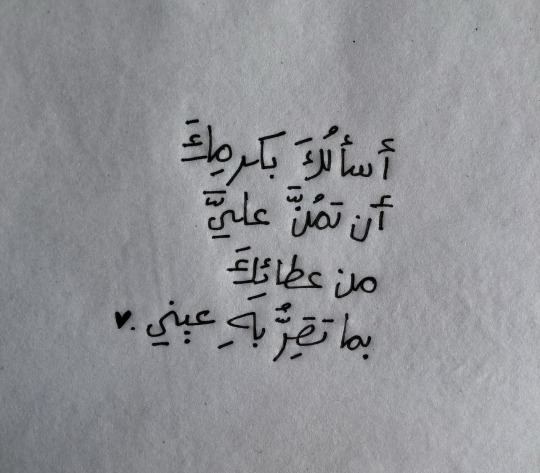 أسألُكَ بكرمِكَ
أن تمُنَّ عليَّ
من عطائِكَ
بما تقِرُّ بهِ عيني ♥.